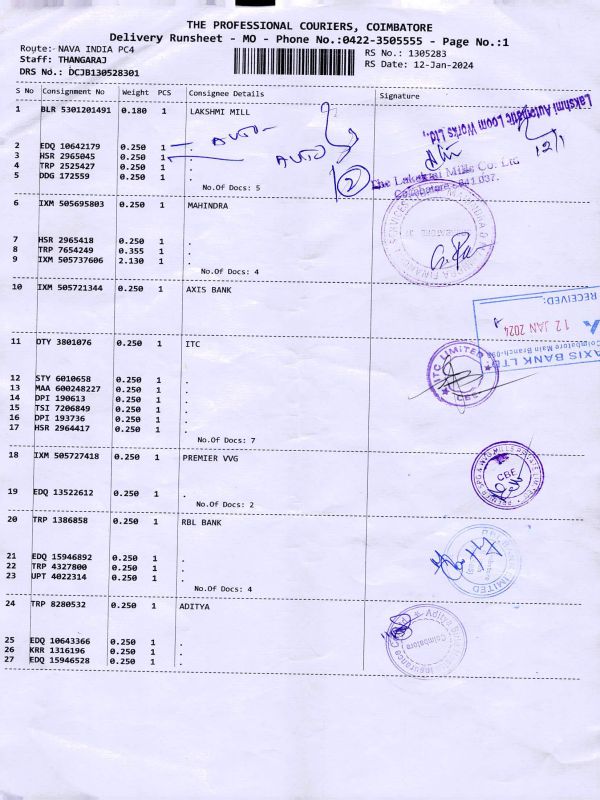 THE PROFESSIONAL COURIERS, COIMBATORE
Delivery Runsheet - MO - Phone No.:0422-3505555 - Page No.:1
Route:- NAVA INDIA PC4
Staff: THANGARAJ
DRS No.: DCJB130528301
RS No.: 1305283
RS Date: 12-Jan-2024
S No Consignment No Weight PCS Consignee Details Signature
1 BLR 5301201491 0.180 1 LAKSHMI MILL
Lakshmi Automatic Loom Works Ltd.,
12/1
AUTO
2 EDQ 10642179 0.250 1 .
3 HSR 2965045 0.250 1 .
AUTO
4 TRP 2525427 0.250 1 .
5 DDG 172559 0.250 1 .
2
The Lakshmi Mills Co. Ltd
Coimbatore - 641 037.
No.Of Docs: 5
6 IXM 505695803 0.250 1 MAHINDRA
7 HSR 2965418 0.250 1 .
8 TRP 7654249 0.355 1 .
9 IXM 505737606 2.130 1 .
No.Of Docs: 4
10 IXM 505721344 0.250 1 AXIS BANK
RECEIVED:
12 JAN 2024
Coimbatore Main Branch-
AXIS BANK LTD
11 OTY 3801076 0.250 1 ITC
ITC LIMITED
CBE
12 STY 6010658 0.250 1 .
13 MAA 600248227 0.250 1 .
14 DPI 190613 0.250 1 .
15 TSI 7206849 0.250 1 .
16 DPI 193736 0.250 1 .
17 HSR 2964417 0.250 1 .
No.Of Docs: 7
18 IXM 505727418 0.250 1 PREMIER VVG
CBE
19 EDQ 13522612 0.250 1 .
No.Of Docs: 2
20 TRP 1386858 0.250 1 RBL BANK
LIMITED
21 EDQ 15946892 0.250 1 .
22 TRP 4327800 0.250 1 .
23 UPT 4022314 0.250 1 .
No.Of Docs: 4
24 TRP 8280532 0.250 1 ADITYA
Aditya Birla Insurance
Coimbatore
25 EDQ 10643366 0.250 1 .
26 KRR 1316196 0.250 1 .
27 EDQ 15946528 0.250 1 .